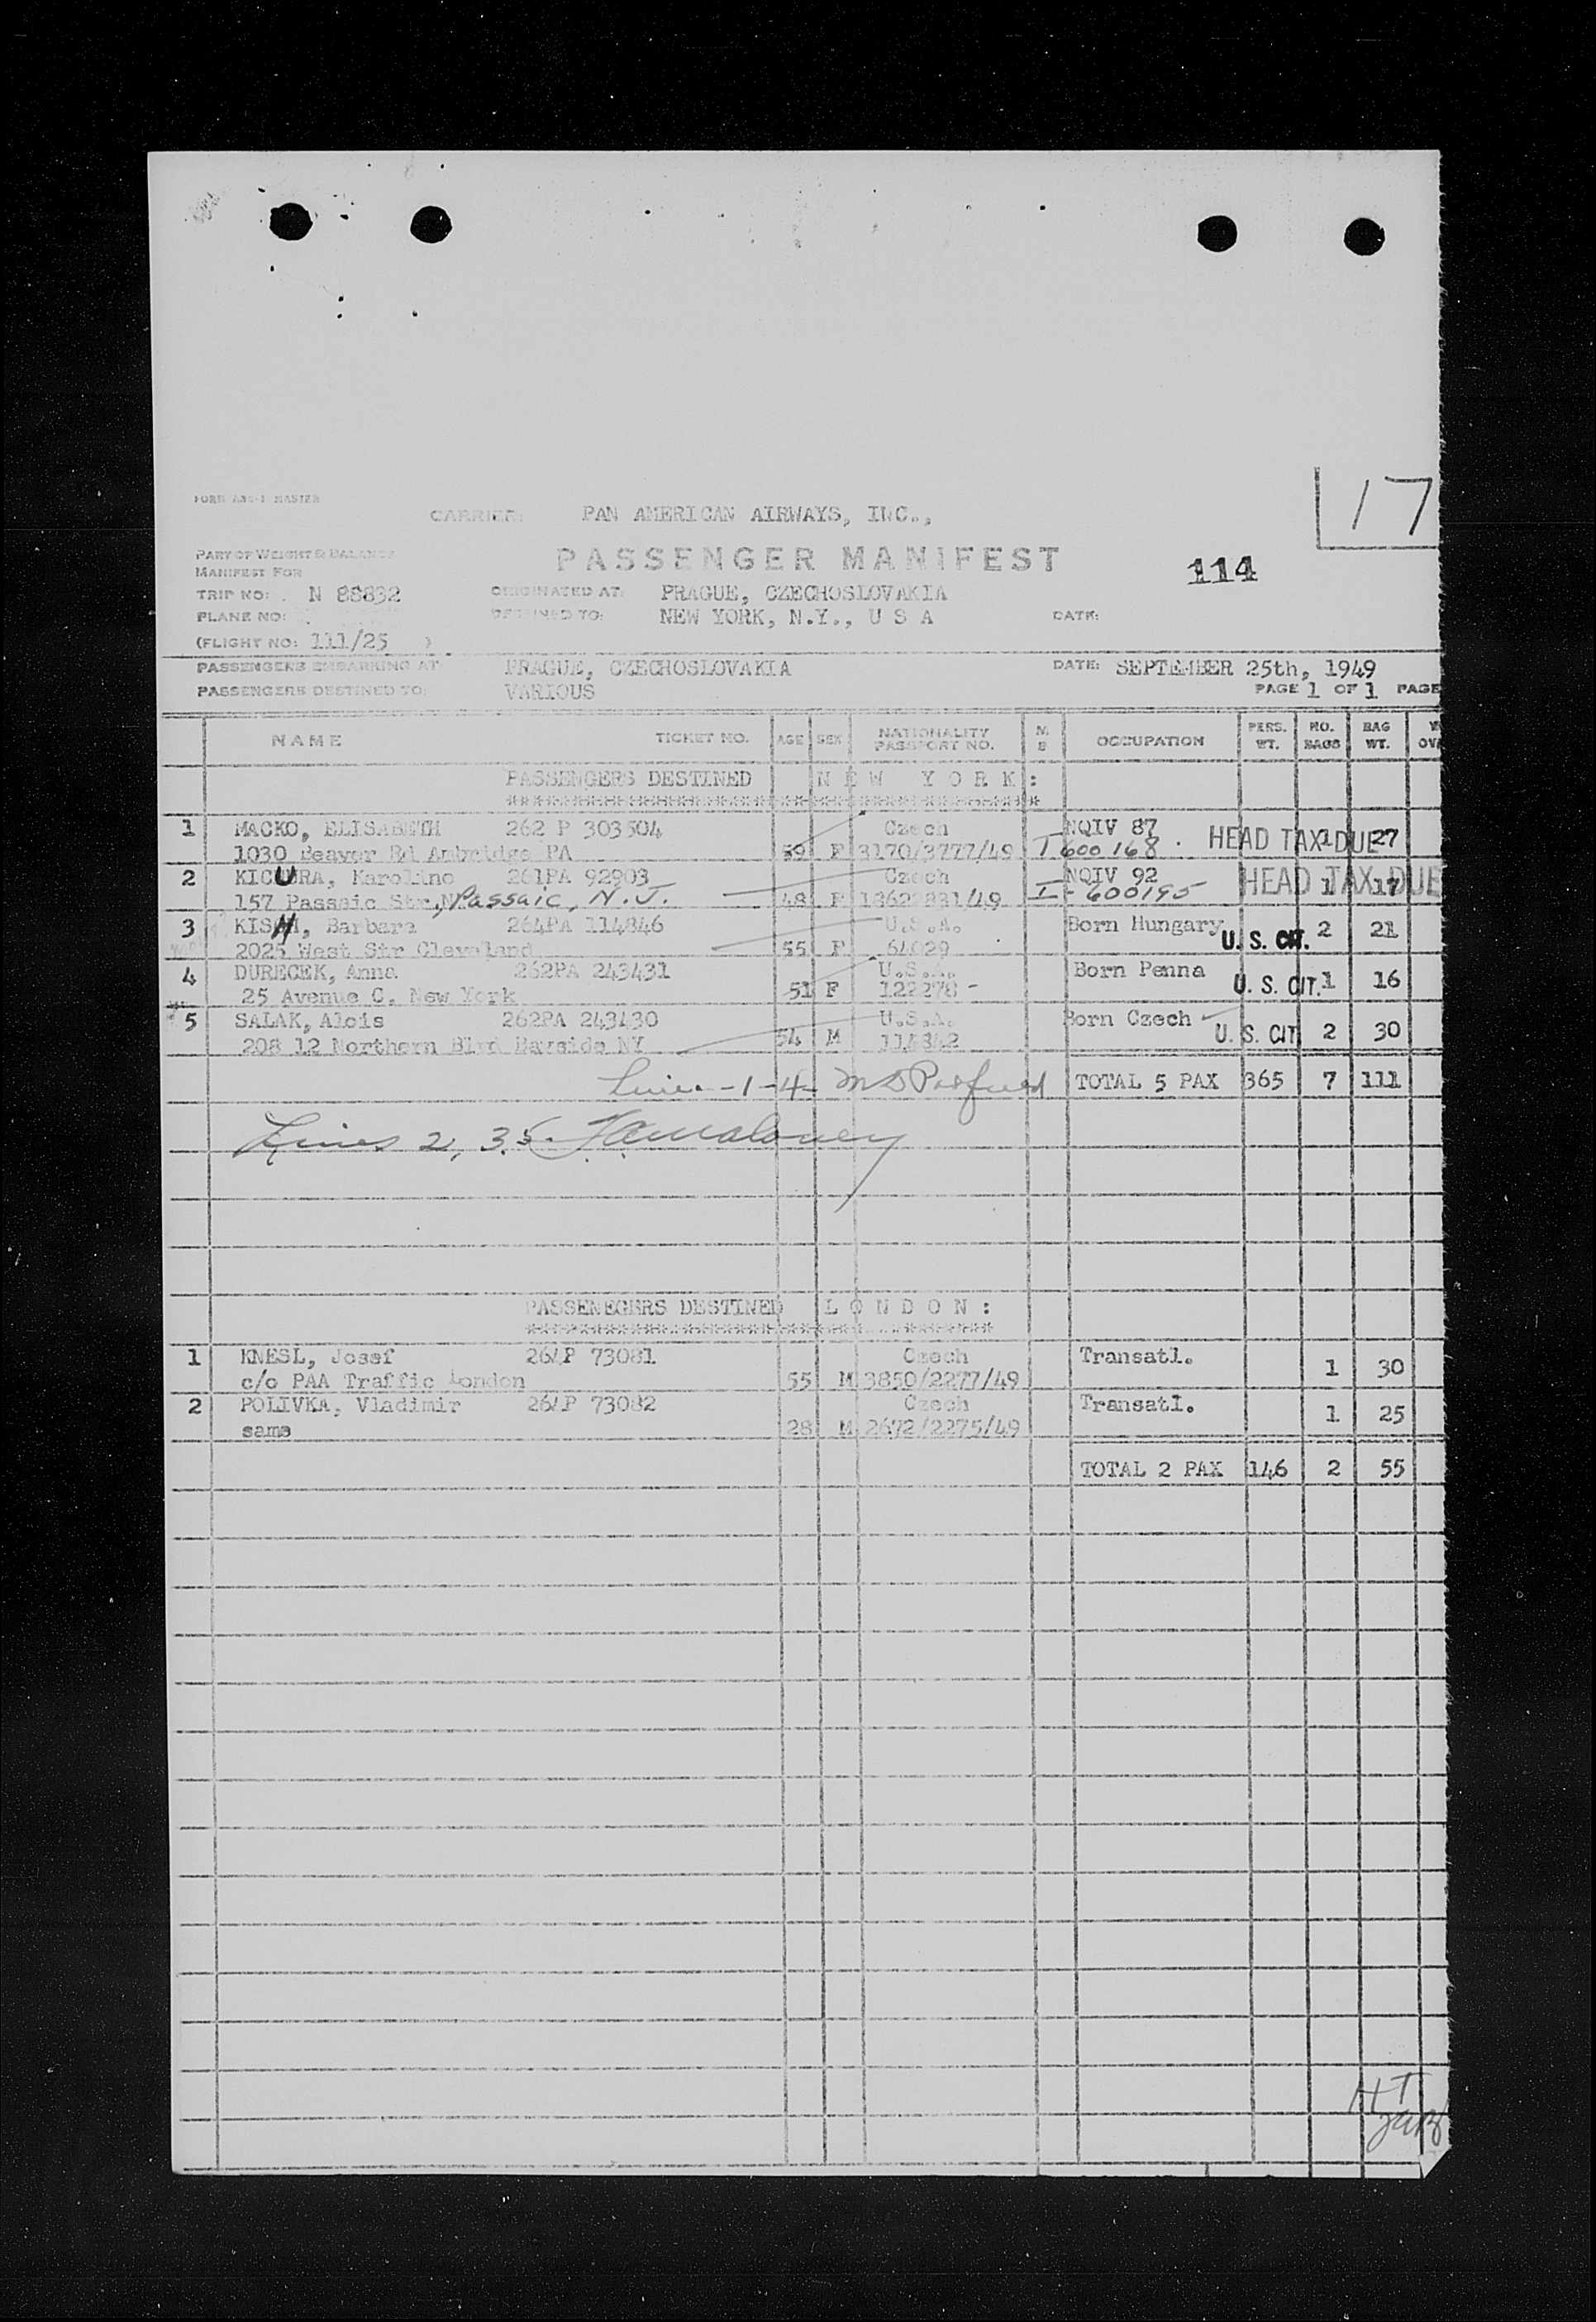 17
FORM MASTER
CARRIER: PAN AMERICAN AIRWAYS, INC.,
PART OF WEIGHT & BALANCE
MANIFEST FOR
PASSENGER MANIFEST
114
TRIP NO: N 88832 ORIGINATED AT: PRAGUE, CZECHOSLOVAKIA
PLANE NO: DESTINED TO: NEW YORK, N.Y., U S A DATE:
(FLIGHT NO: 111/25 )
PASSENGERS EMBARKING AT PRAGUE, CZECHOSLOVAKIA DATE: SEPTEMBER 25th, 1949
PASSENGERS DESTINED TO: VARIOUS PAGE 1 OF 1 PAGE
NAME TICKET NO. AGE SEX NATIONALITY PASSPORT NO. M S OCCUPATION PERS. WT. NO. BAGS BAG WT.
PASSENGERS DESTINED N E W Y O R K :
1 MACKO, ELISABETH 262 P 303504 Czech NQIV 87 HEAD TAX DUE 1 27
1030 Beaver Rd Ambridge PA 59 F 3170/3777/49 I 600168
2 KICURA, Karoline 261PA 92903 Czech NQIV 92 HEAD TAX DUE 1 17
157 Passaic Str, Passaic, N.J. 48 F I-600195
3 Barbara 264PA 114846 U.S.A. Born Hungary U. S. CIT. 2 21
2025 West Str Cleveland 55 F 64029
4 DURECEK, Anna 262PA 243431 Born Penna U. S. CIT. 1 16
25 Avenue C, New York 51 F 122278 -
5 SALAK, Alois 262PA 243430 U.S.A. Born Czech U. S. CIT 2 30
208 12 Northern Blvd Bayside NY 54 M 114342
Lines -1-4- TOTAL 5 PAX 365 7 111
Lines 2, 3, 5. Maloney
PASSENEGERS DESTINED L O N D O N :
1 KNESL, Josef 264P 73081 Czech Transatl. 1 30
c/o PAA Traffic London 55 M 3850/2277/49
2 POLIVKA, Vladimir 264P 73082 Czech Transatl. 1 25
same 28 M 2672/2275/49
TOTAL 2 PAX 146 2 55
HT